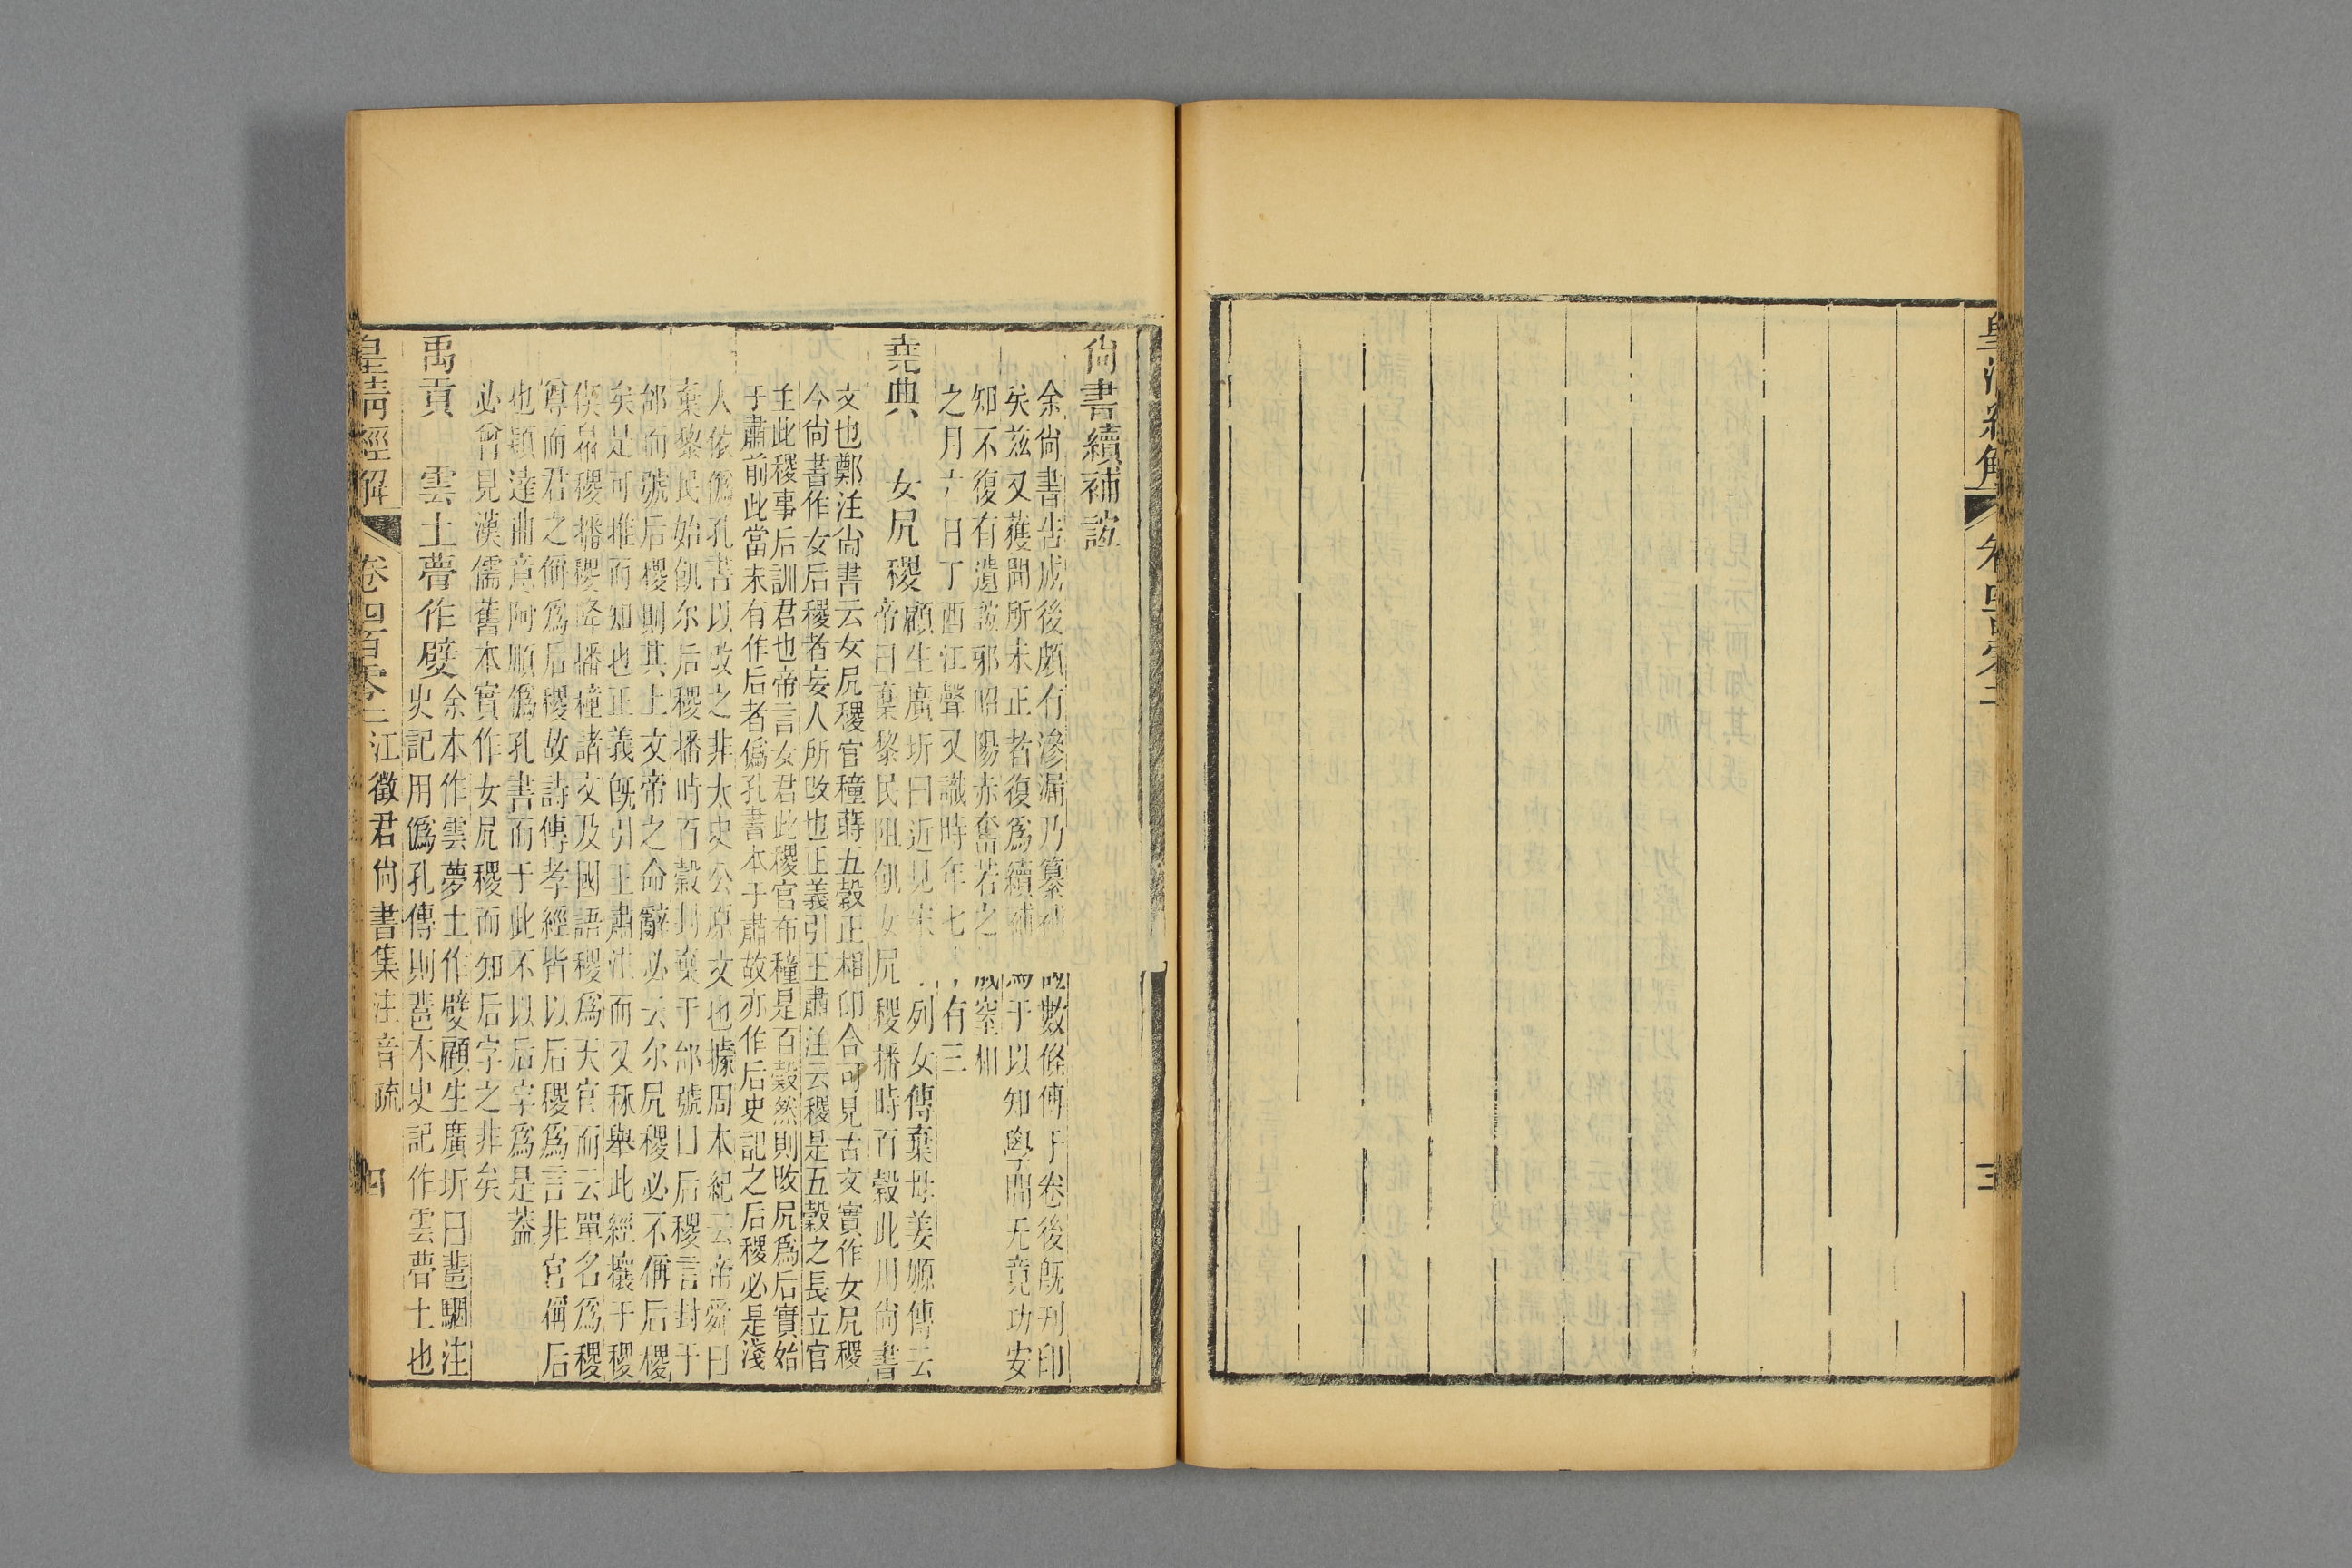 皇清經解
三
尙書續補誼
余尙書告成後頗有滲漏乃纂補 數條傅于卷後旣刊印
矣茲又獲聞所未正者復爲續補 于以知學問无竟功安
知不復有遺誼邪昭陽赤奮若之 窒相
之月 日丁酉江聲又識時年七 有三
堯典
女凥稷
顧生廣圻曰近見宋 列女傳棄母姜嫄傳云
帝曰棄黎民阻飢女凥稷播時百穀此用尙書
文也鄭注尙書云女凥稷官穜蒔五穀正相印合可見古文實作女凥稷
今尙書作女后稷者妄人所改也正義引王肅注云稷是五穀之長立官
主此稷事后訓君也帝言女君此稷官布穜是百穀然則改凥爲后實始
于肅前此當未有作后者僞孔書本于肅故亦作后史記之后稷必是淺
人依僞孔書以改之非太史公原文也據周本紀云帝舜曰
棄黎民始飢尔后稷播時百穀封棄于邰號曰后稷言封于
邰而號后稷則其上文帝之命辭必云尔凥稷必不偁后稷
矣是可推而知也正義旣引王肅注而又稱舉此經攘于稷
偰咎稷播稷降播穜諸文及國語稷爲天官而云單名爲稷
尊而君之偁爲后稷故詩傳孝經皆以后稷爲言非官偁后
也穎達曲意阿順僞孔書而于此不以后字爲是葢
必曾見漢儒舊本實作女凥稷而知后字之非矣
禹貢
雲土夢作嬖
余本作雲夢土作嬖顧生廣圻曰裴駰注
史記用僞孔傳則裴本史記作雲夢土也
皇清經解
卷四百零二
江徵君尙書集注音疏
四